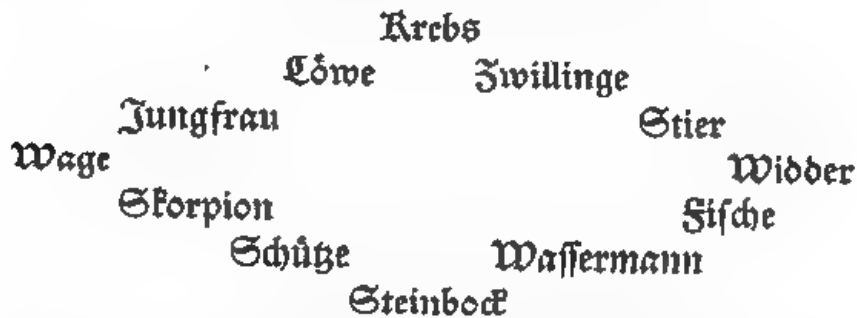 Krebs
Löwe Zwillinge
Jungfrau Stier
Wage Widder
Skorpion Fische
Schütze Wassermann
Steinbock